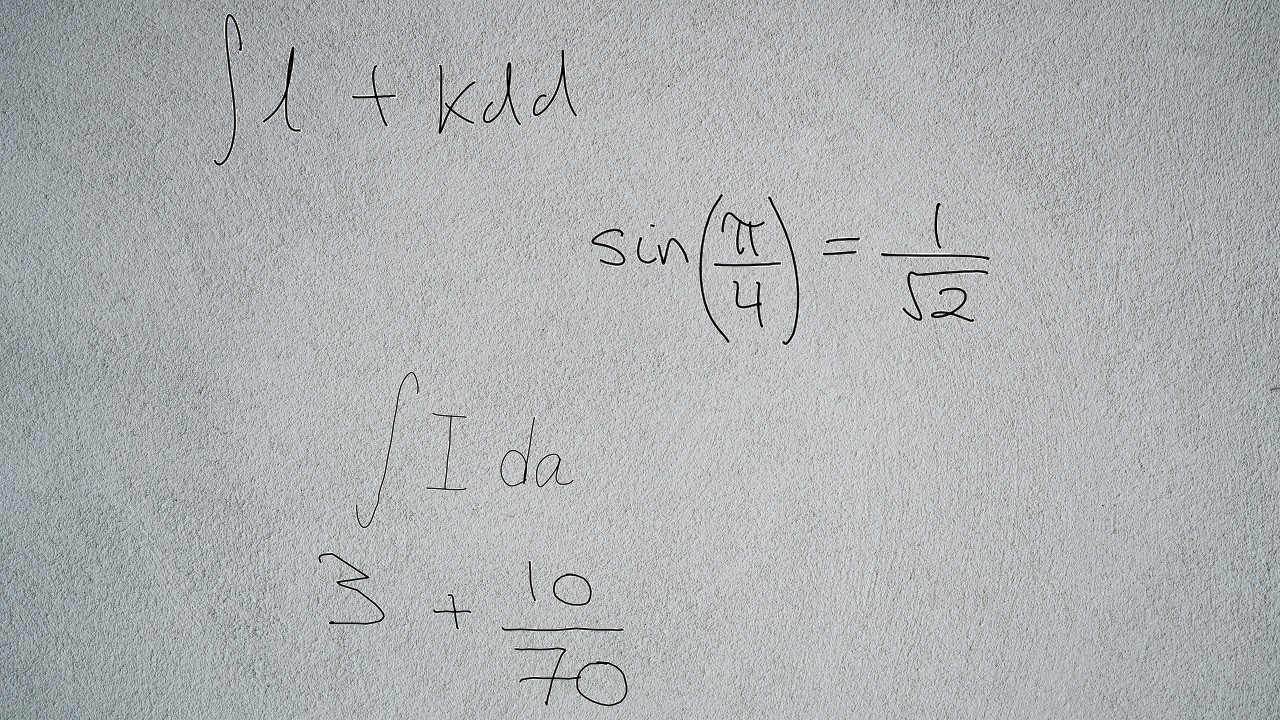 ∫ l + kdd
sin(π/4) = 1/√2
∫ I da
3 + 10/70